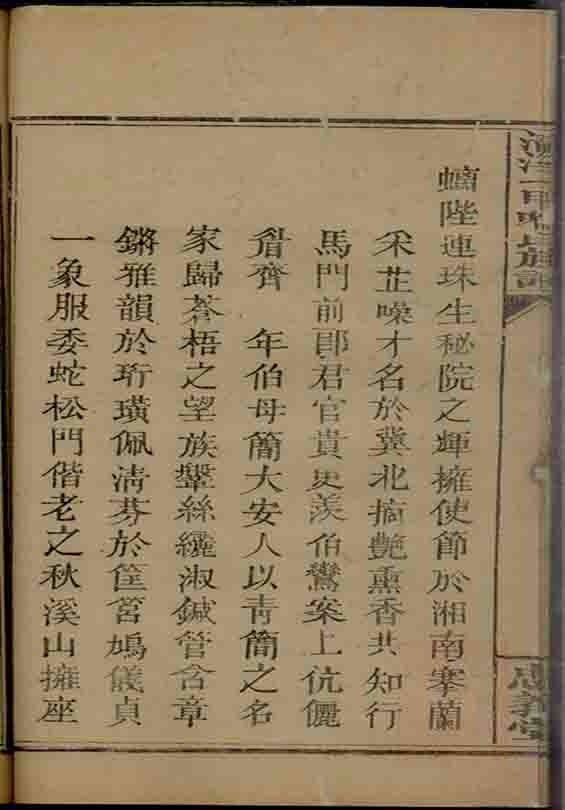 螭陛連珠生秘院之輝擁使節於湘南搴蘭
采芷噪才名於冀北摛艷熏香共知行
馬門前郎君官貴更羨伯鸞案上伉儷
眉齊　年伯母簡大安人以青簡之名
家歸蒼梧之望族鑿絲纏淑鍼管含章
鏘雅韻於珩璜佩清芬於筐筥鳩儀貞
一象服委蛇松門偕老之秋溪山擁座